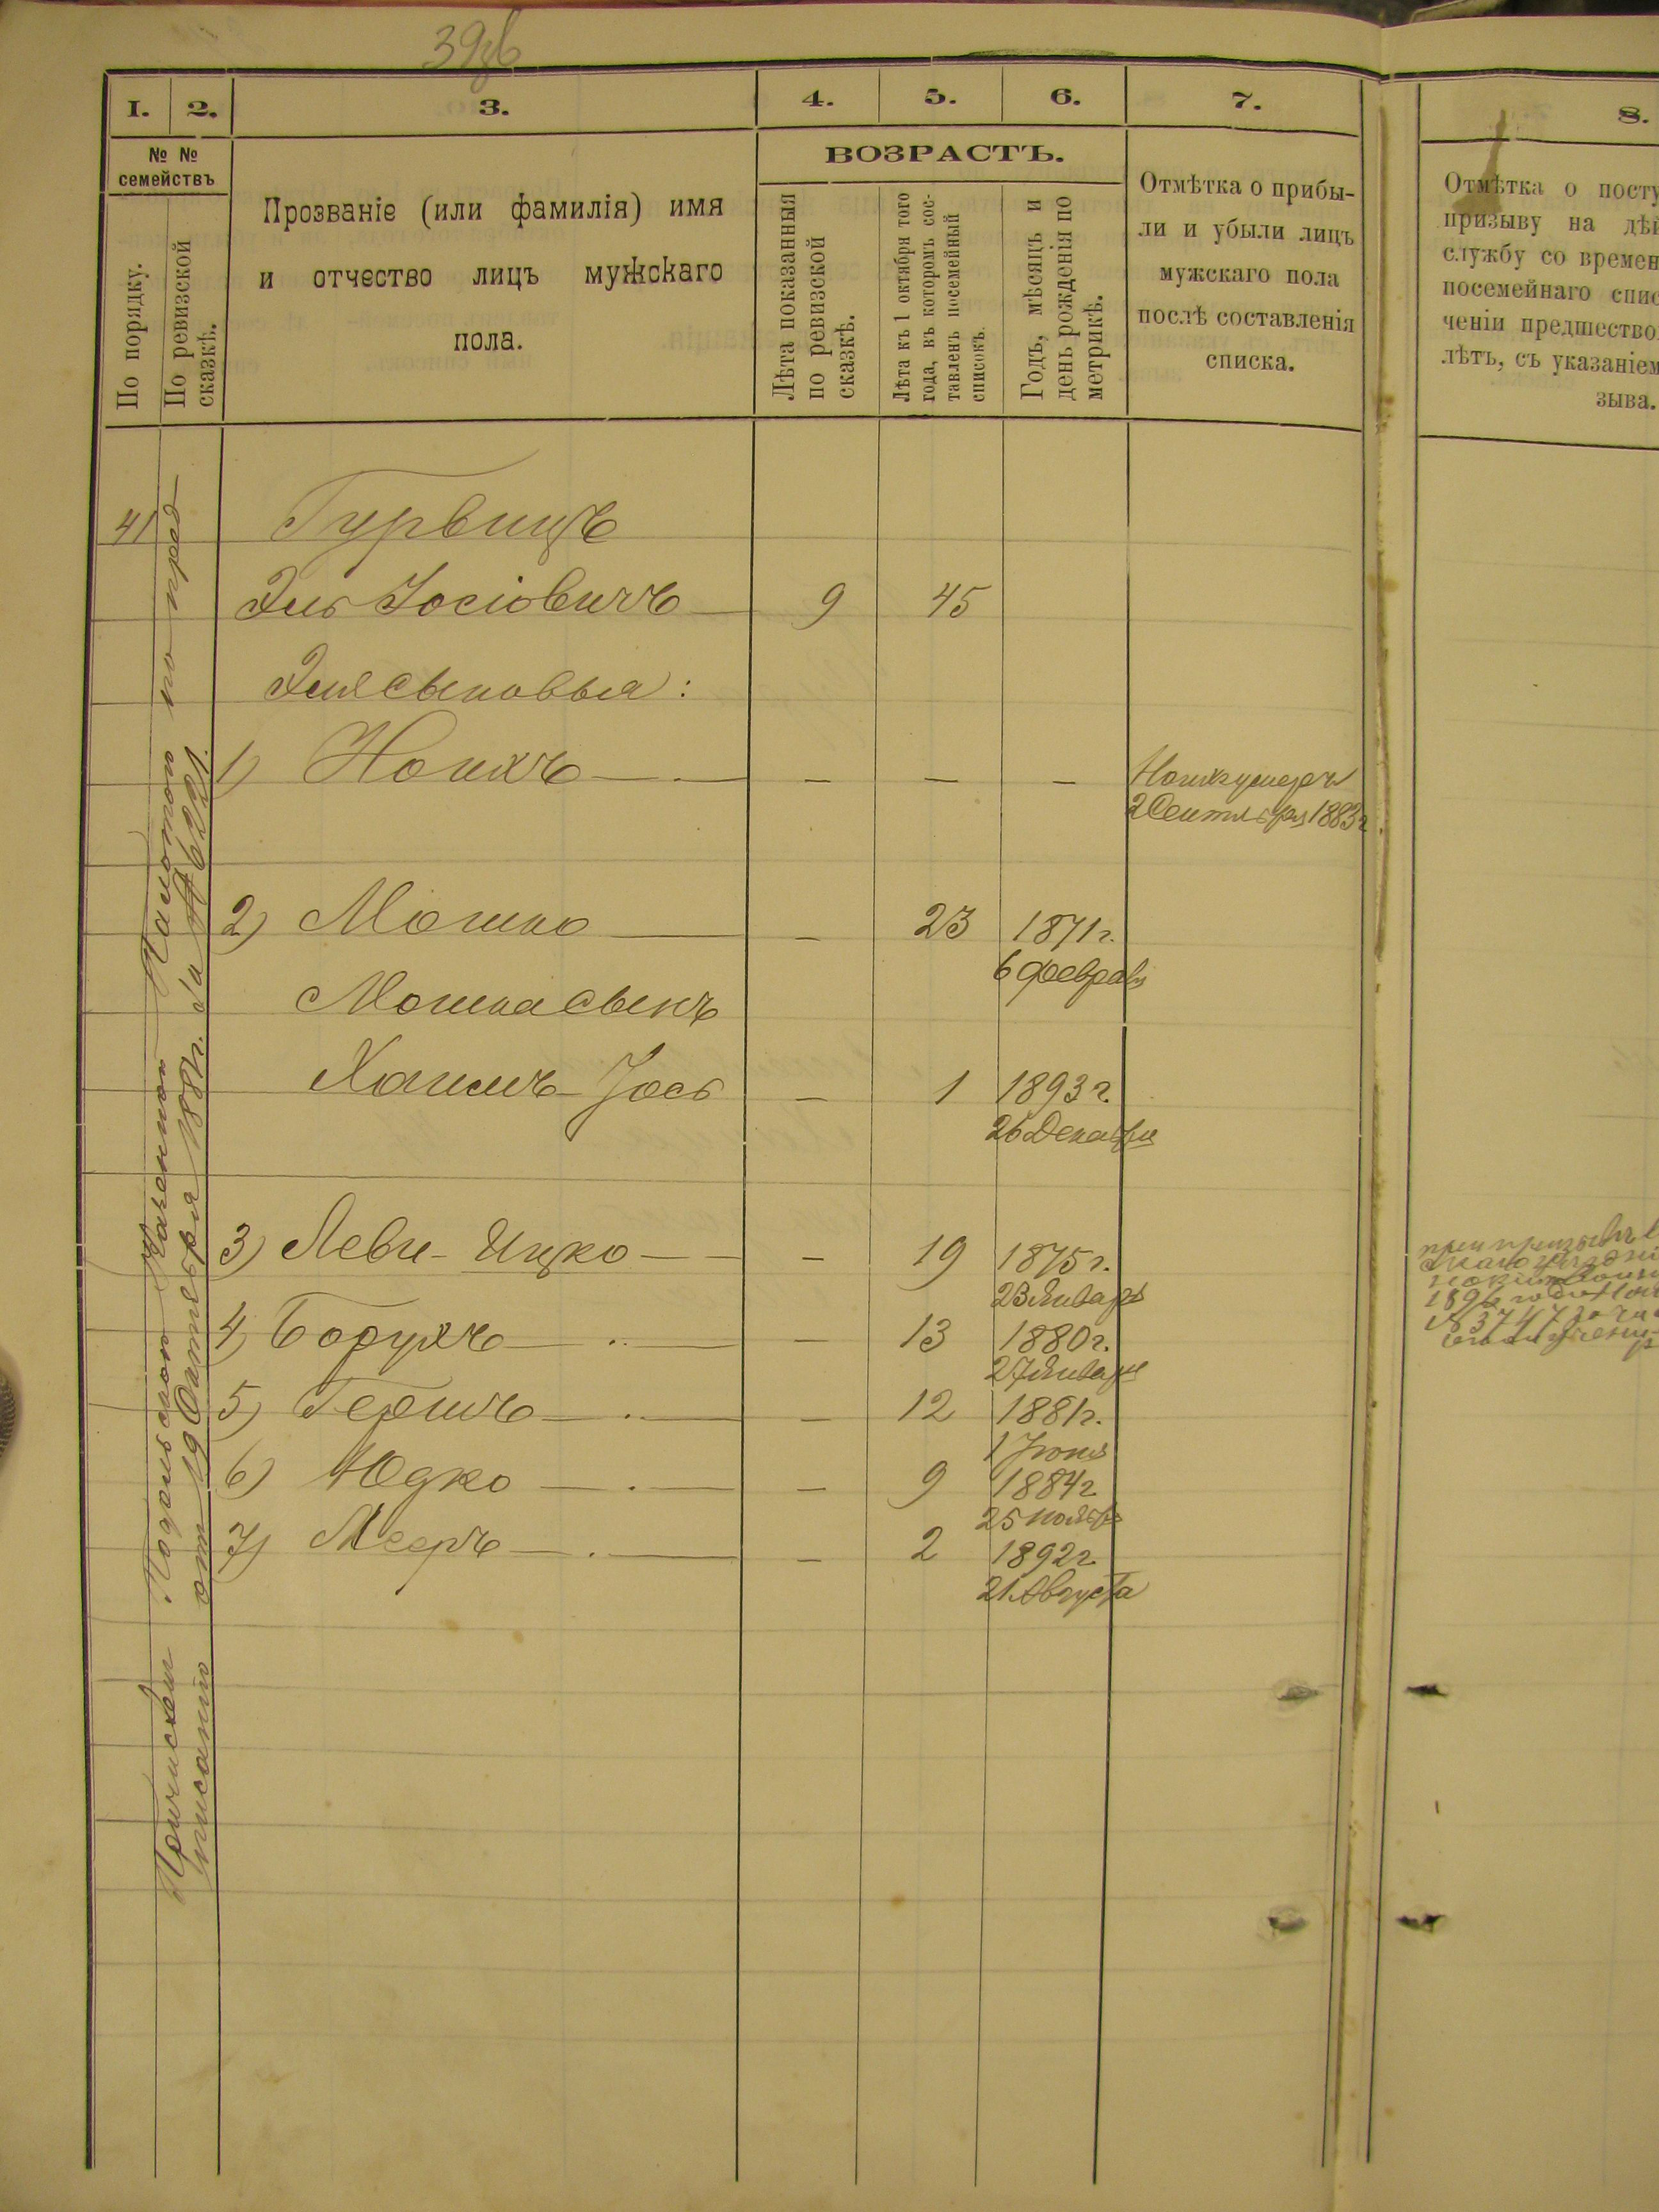 39об
1. 2. 3. 4. 5. 6. 7. 8.
№ № семействъ
По порядку.
По ревизской
сказкѣ.
Прозваніе (или фамилія) имя
и отчество лицъ мужскаго
пола.
ВОЗРАСТЪ.
Лѣта показанныя
по ревизской
сказкѣ.
Лѣта къ 1 октября того
года, въ которомъ сос-
тавленъ посемейный
списокъ.
Годъ, мѣсяцъ и
день рожденія по
метрикѣ.
Отмѣтка о прибы-
ли и убыли лицъ
мужскаго пола
послѣ составленія
списка.
Отмѣтка о посту
призыву на дѣй
службу со времен
посемейнаго спис
ченіи предшество
лѣтъ, съ указаніем
зыва.
41 Гурвицъ
Эль Іосіовичъ 9 45
Эля сыновья:
1) Ноихъ — — — — Ноихъ умеръ
2 Сентября 1883 г
2) Мошко — — 23 1871 г.
6 февраля
Мошка сынъ
Хаимъ-Іось — 1 1893 г.
26 Декабря
3) Леви-Ицко — — 19 1875 г.
23 Января
4) Борухъ — 13 1880 г.
27 Января
5) Гершъ — — 12 1881 г.
1 Іюня
6) Юдко — — 9 1884 г.
25 ноября
7) Мееръ — — 2 1892 г.
21 Августа
Причислен Подольскою Казенною Палатою по пред-
писанію отъ 19 Октября 1881 г. за № 6221.
при призывѣ
1896 года
№ 3747